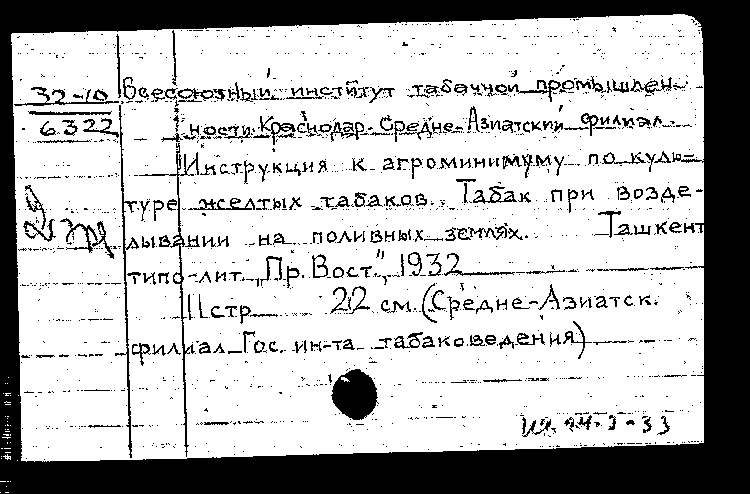 32-10 Всесоюзный институт табачной промышлен-
6322 ности. Краснодар. Средне-Азиатский филиал.
Инструкция к агроминимуму по куль=
туре желтых табаков. Табак при возде-
лывании на поливных землях. Ташкент
типо-лит. „Пр. Вост.", 1932
11 стр 22 см. (Средне-Азиатск.
филиал Гос. ин-та табаковедения)